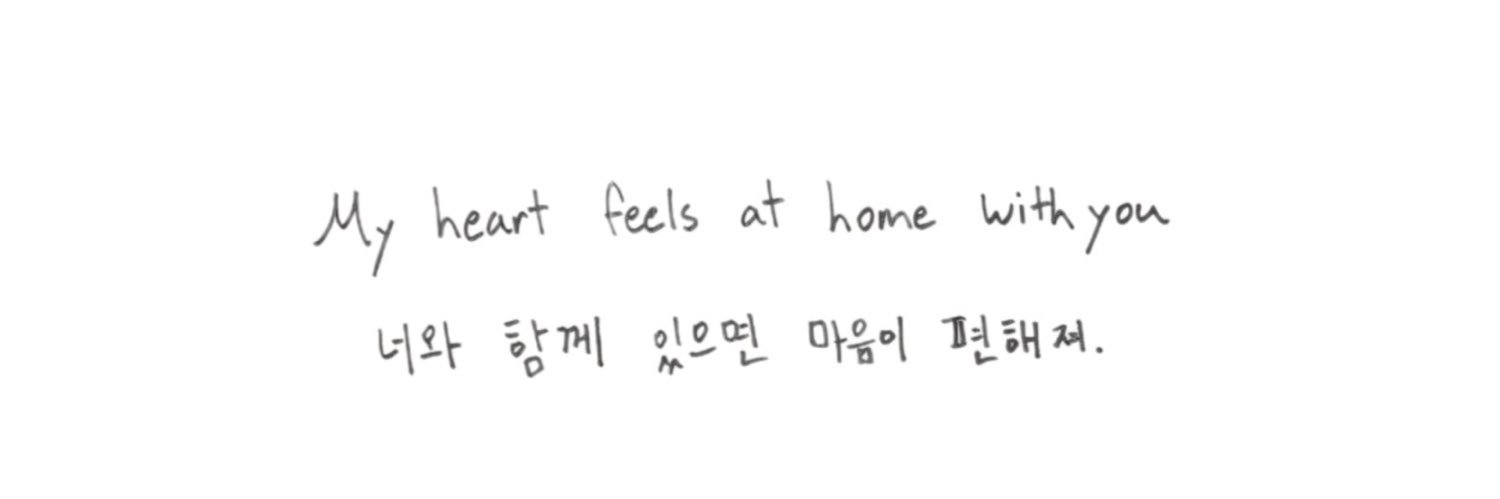 My heart feels at home with you
너와 함께 있으면 마음이 편해져.